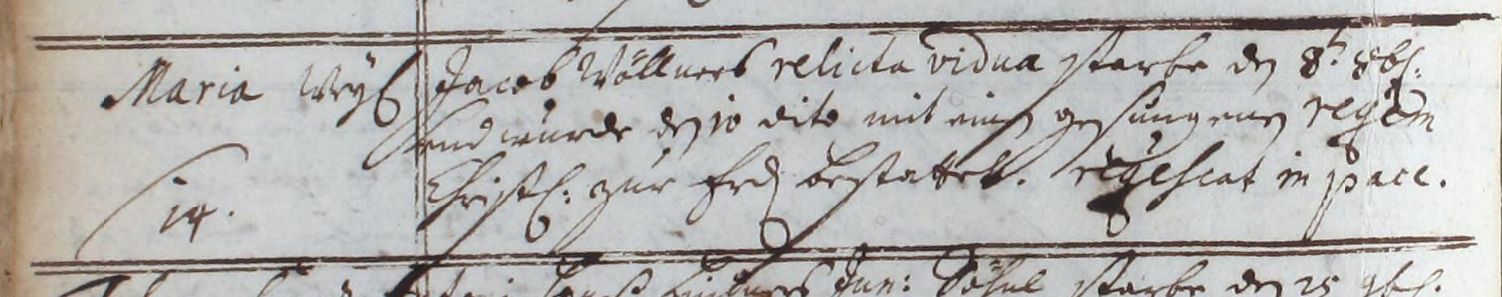 Maria Weyß
14.
Jacob Wöllners relicta vidua starbe den 8t. 8br:
und wurde den 10 dito mit einem gesungenen requiem
Christl: zur Erd bestattet. requiescat in pace.
Jun: Söhnl starbe den 25 9br.